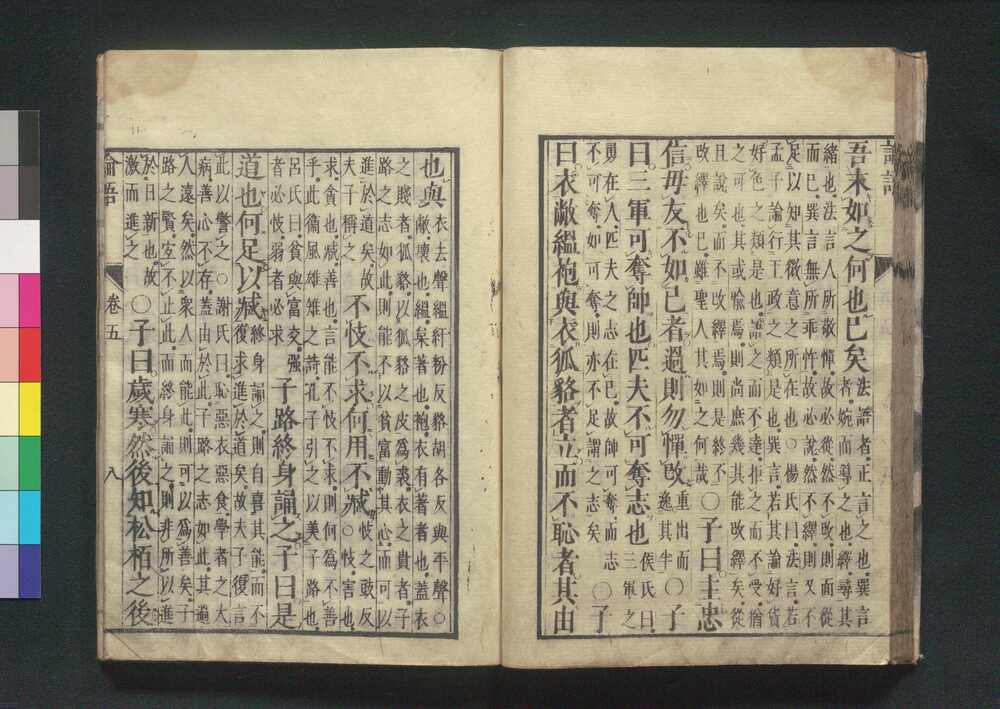 論語
吾末如之何也已矣 法語者正言之也巽言
者婉而導之也繹尋其
緒也法言人所敬憚故必從然不改則面從
而已巽言無所乖忤故必說然不繹則又不
足以知其微意之所在也○楊氏曰法言若
孟子論行王政之類是也巽言若其論好貨
好色之類是也語之而不達拒之而不受猶
之可也其或喻焉則尚庶幾其能改繹矣從
且說矣而不改繹焉則是終不
改繹也已雖聖人其如之何哉 ○子曰主忠
信毋友不如己者過則勿憚改 重出而
逸其半 ○子
曰三軍可奪帥也匹夫不可奪志也 侯氏曰
三軍之
勇在人匹夫之志在己故帥可奪而志
不可奪如可奪則亦不足謂之志矣 ○子
曰衣敝縕袍與衣狐貉者立而不恥者其由
也與 衣去聲縕紆粉反貉胡各反與平聲○
敝壞也縕枲著也袍衣有著者也蓋衣
之賤者狐貉以狐貉之皮爲裘衣之貴者子
路之志如此則能不以貧富動其心而可以
進於道矣故
夫子稱之 不忮不求何用不臧 忮之豉反
○忮害也
求貪也臧善也言能不忮不求則何爲不善
乎此衞風雄雉之詩孔子引之以美子路也
呂氏曰貧與富交強
者必忮弱者必求 子路終身誦之子曰是
道也何足以臧 終身誦之則自喜其能而不
復求進於道矣故夫子復言
此以警之○謝氏曰恥惡衣惡食學者之大
病善心不存蓋由於此子路之志如此其過
人遠矣然以衆人而能此則可以爲善矣子
路之賢宜不止此而終身誦之則非所以進
於日新也故
激而進之 ○子曰歲寒然後知松栢之後
論語 卷五 八